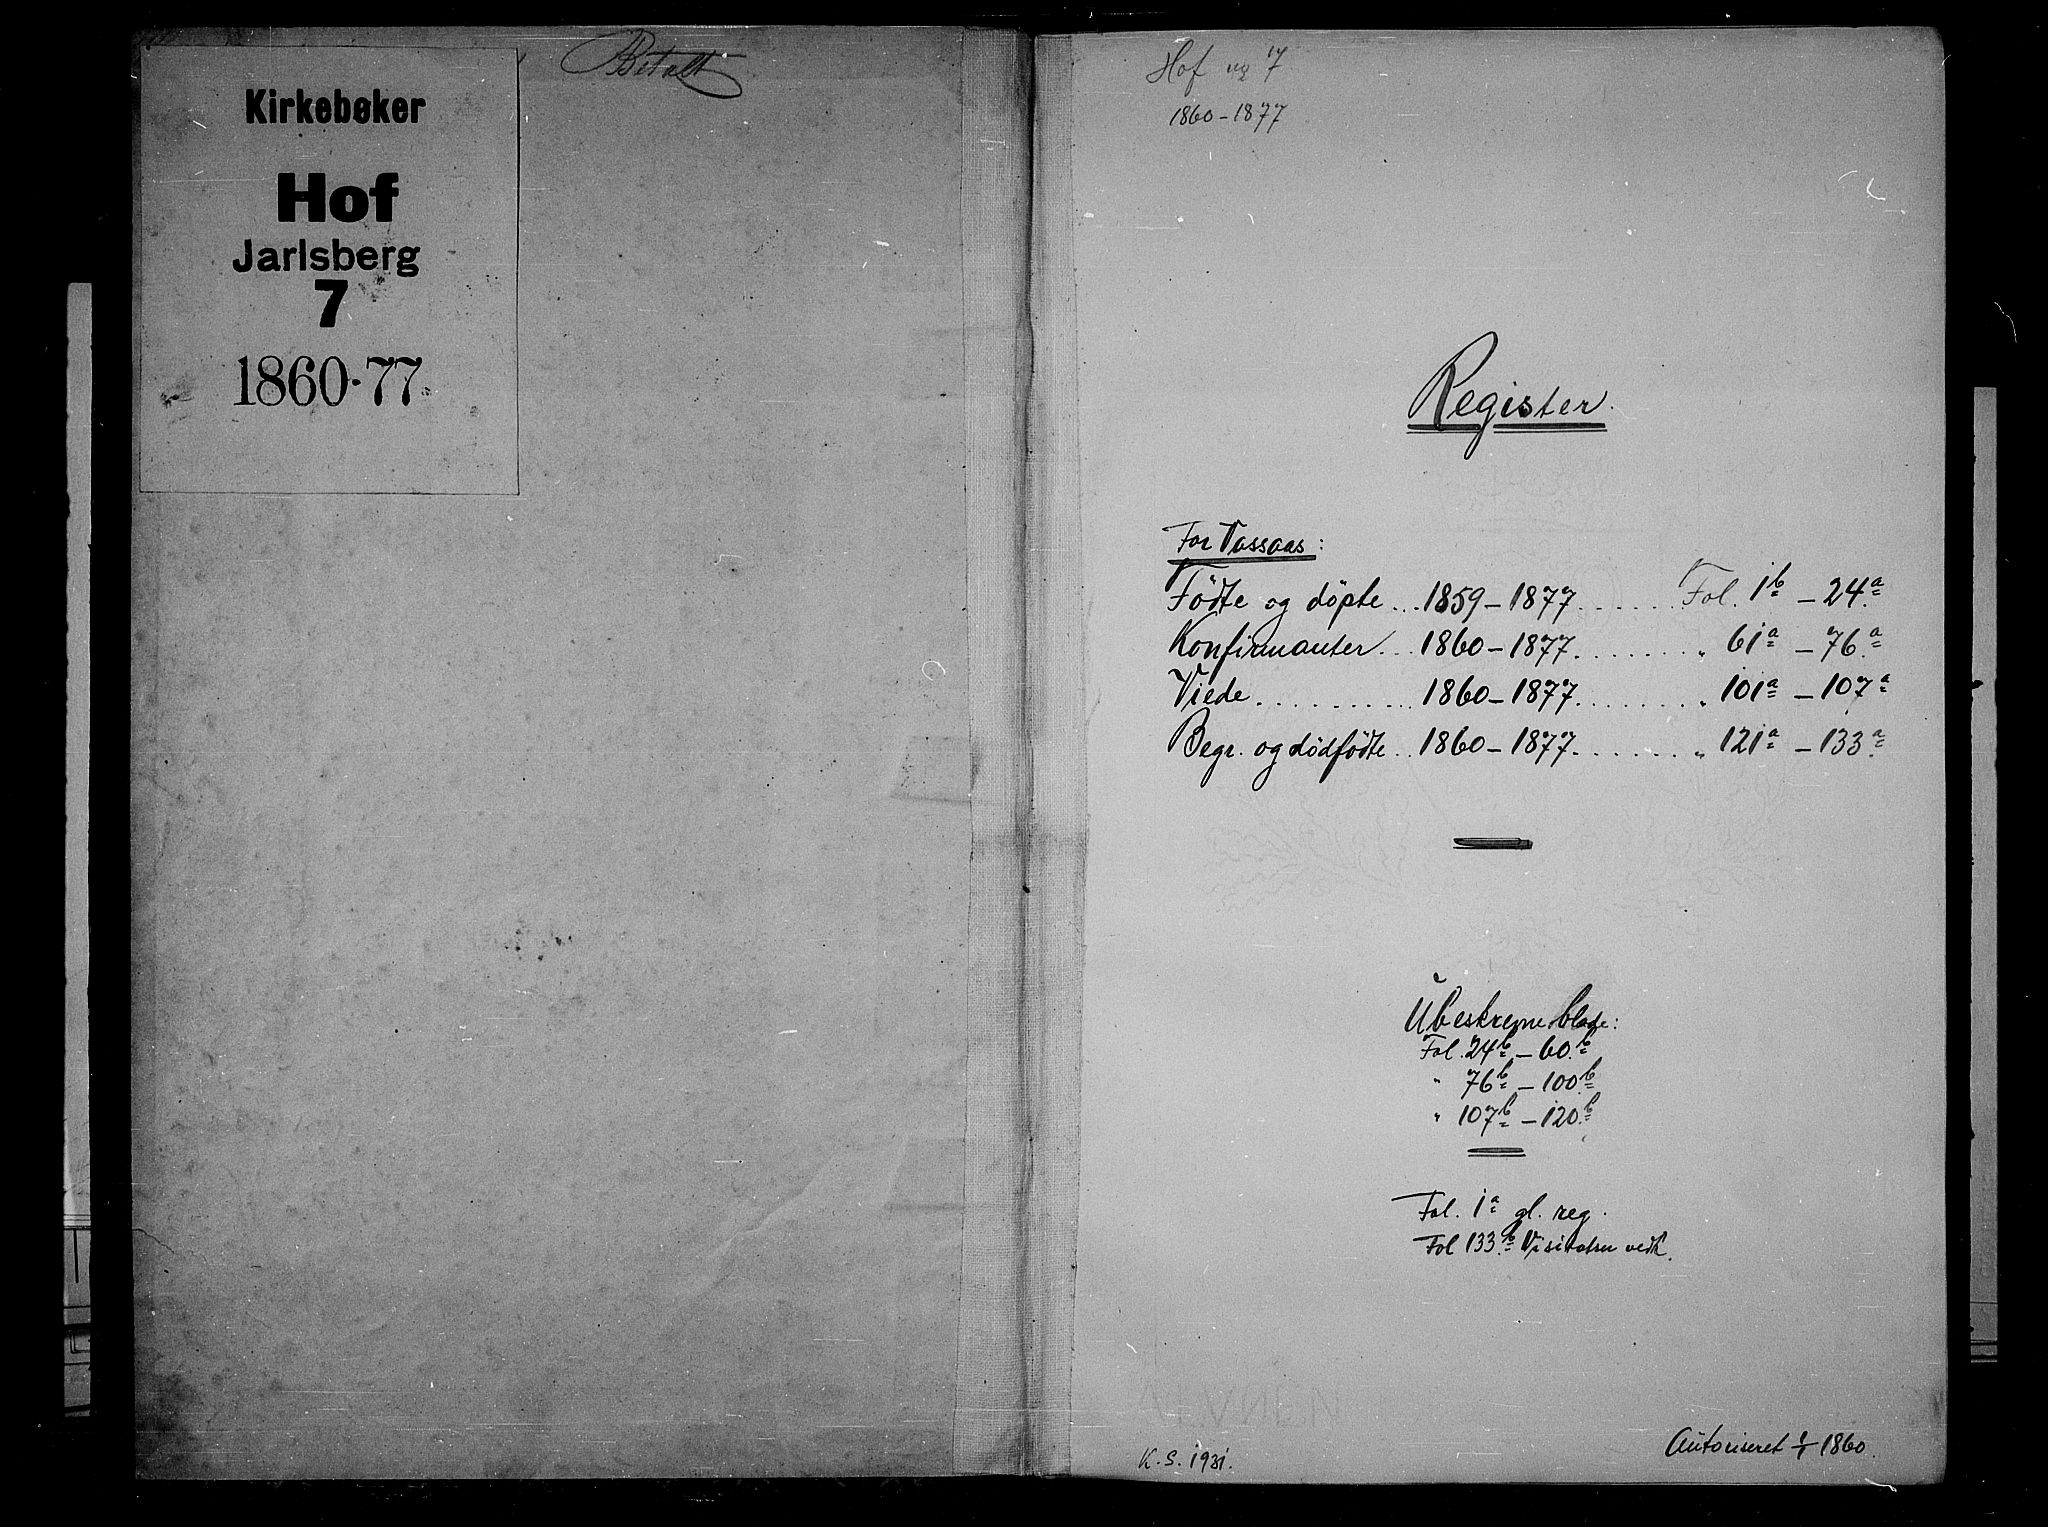 Kirkebøker
Hof
Jarlsberg
7
1860-77.
Betalt
Hof nr 7
1860-1877
Register.
For Vassaas:
Födte og döpte...1859-1877.......Fol. 1b - 24a
Konfirmanter...1860-1877........" 61a - 76a
Viede..........1860-1877........" 101a - 107a
Begr. og dödfödte..1860-1877......." 121a - 133a
Ubeskrevne blade:
Fol. 24b - 60b
" 76b - 100b
" 107b - 120b
Fol. 1a gl. reg.
Fol 133b Visitatsu vedk.
K.S. 1931.
Autoriseret 1/1 1860.